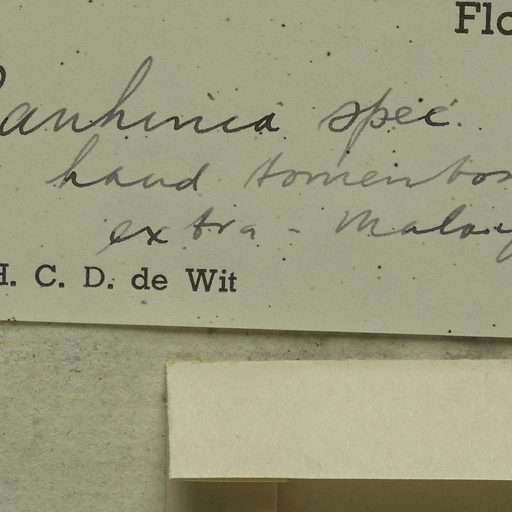 Flo
Bauhinia spec.
haud tomentos
extra - Malay
H. C. D. de Wit